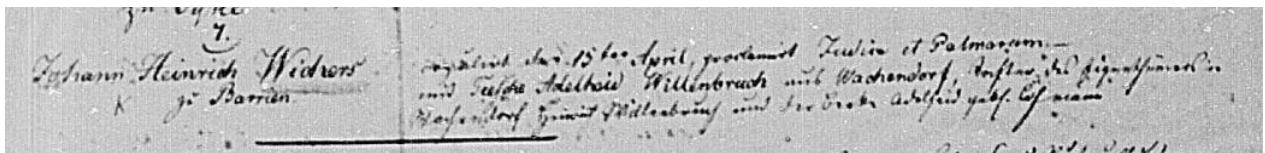 zu Syke
7.
Johann Heinrich Wichers
zu Barrien.
copulirt den 15ten April, proclamirt Judica et Palmarum. —
mit Adelheid Willenbruch aus Wachendorf, Tochter des Eigenthümers in
Wachendorf Hinrich Willenbruch und der Adelheid gebh.